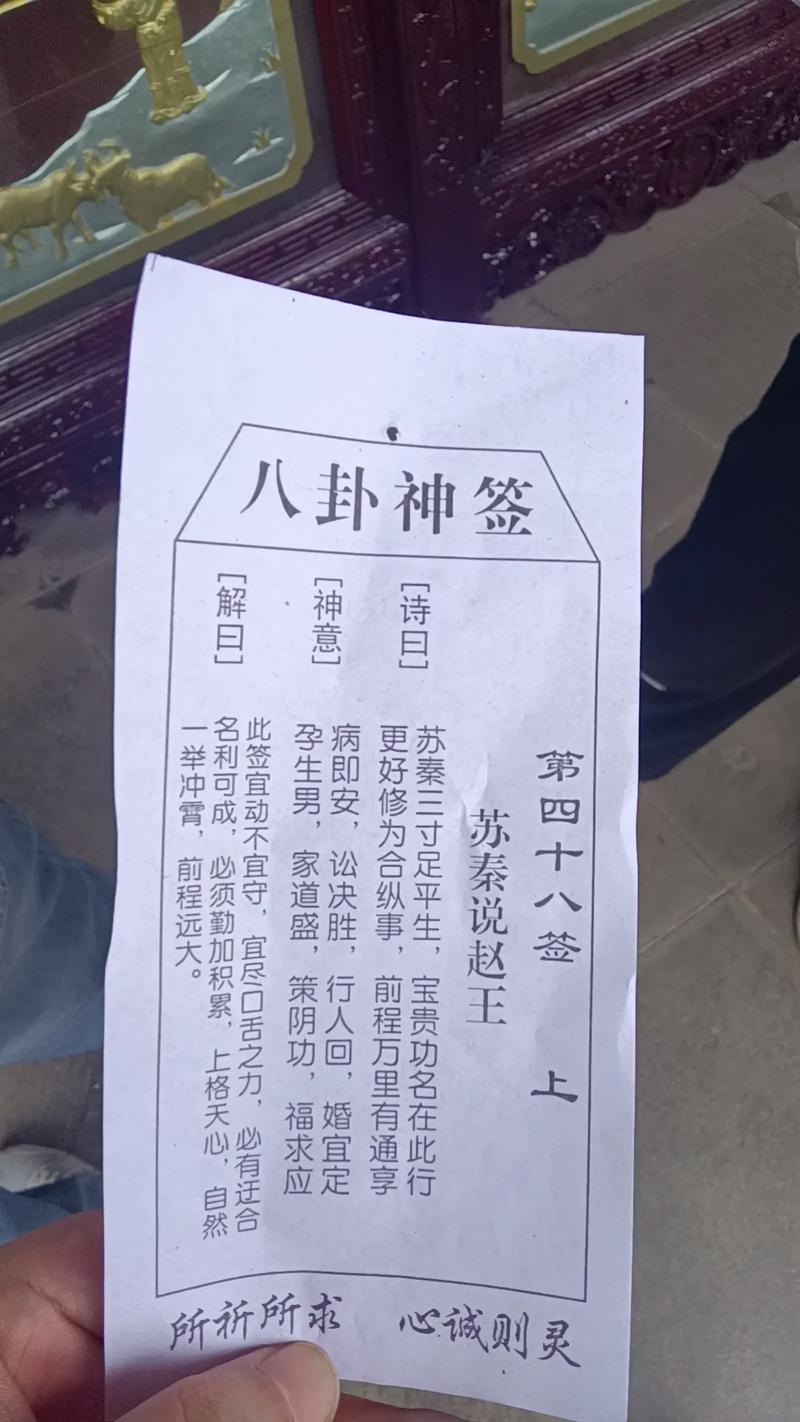 八卦神签
第四十八签 上
苏秦说赵王
[诗曰]
苏秦三寸足平生，宝贵功名在此行
更好修为合纵事，前程万里有通享
[神意]
病即安，讼决胜，行人回，婚宜定
孕生男，家道盛，策阴功，福求应
[解曰]
此签宜动不宜守，宜尽口舌之力，必有迂合
名利可成，必须勤加积累，上格天心，自然
一举冲霄，前程远大。
所祈所求 心诚则灵